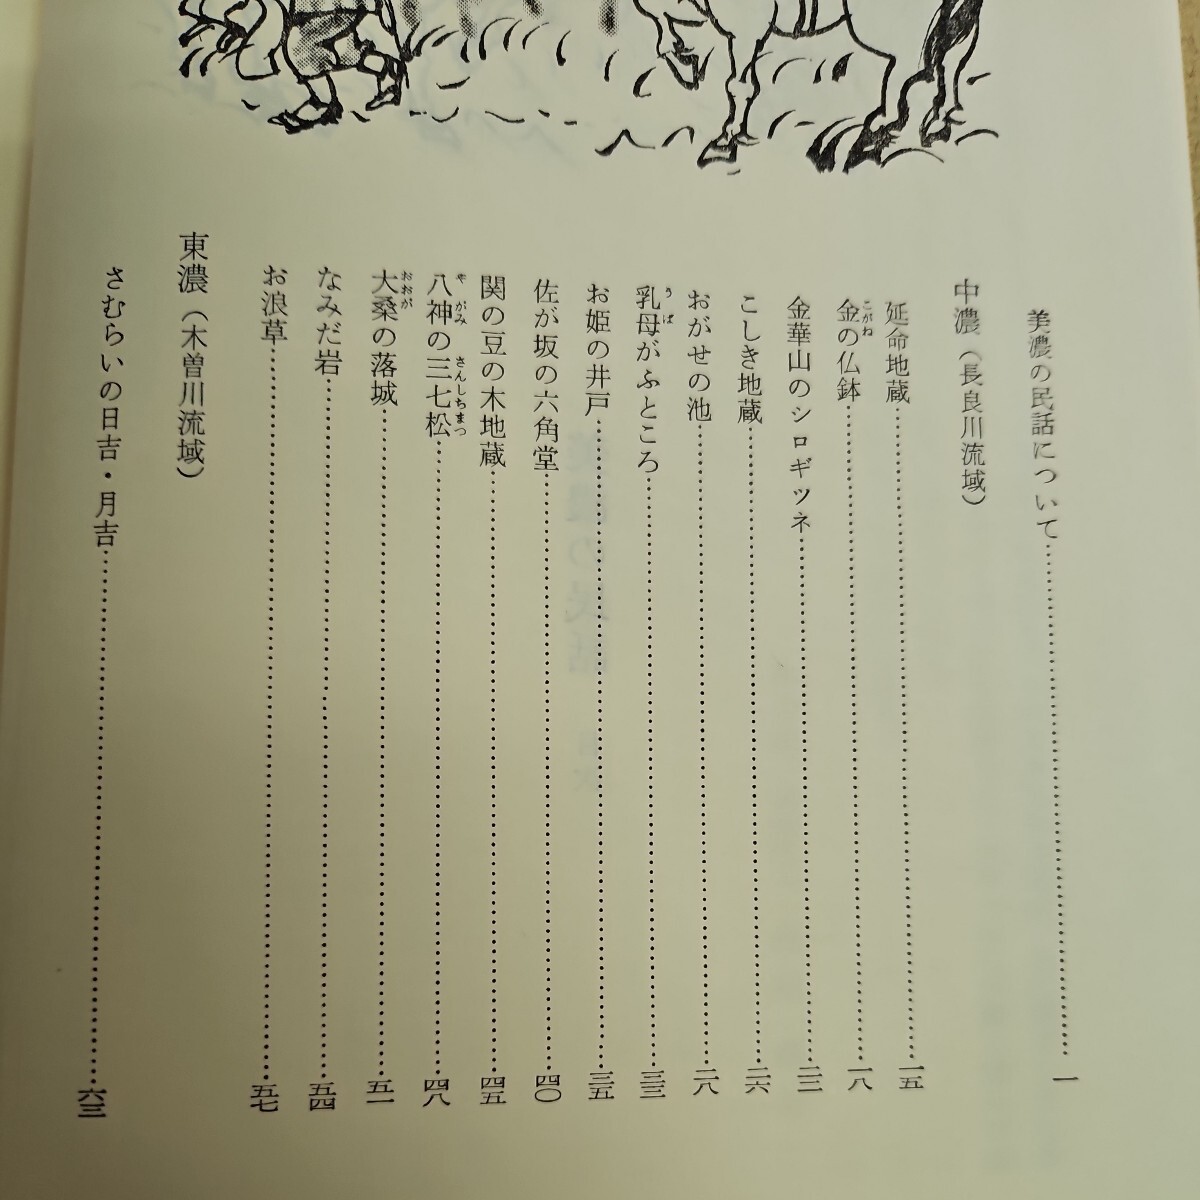 美濃の民話について……一
中濃（長良川流域）
延命地蔵……一五
金の仏鉢……一八
こがね
金華山のシロギツネ……二三
こしき地蔵……二六
おがせの池……二八
乳母がふところ……三三
うば
お姫の井戸……三五
佐が坂の六角堂……四〇
関の豆の木地蔵……四五
八神の三七松……四八
やがみ さんしちまつ
大桑の落城……五一
おおが
なみだ岩……五四
お浪草……五七
東濃（木曽川流域）
さむらいの日吉・月吉……六三